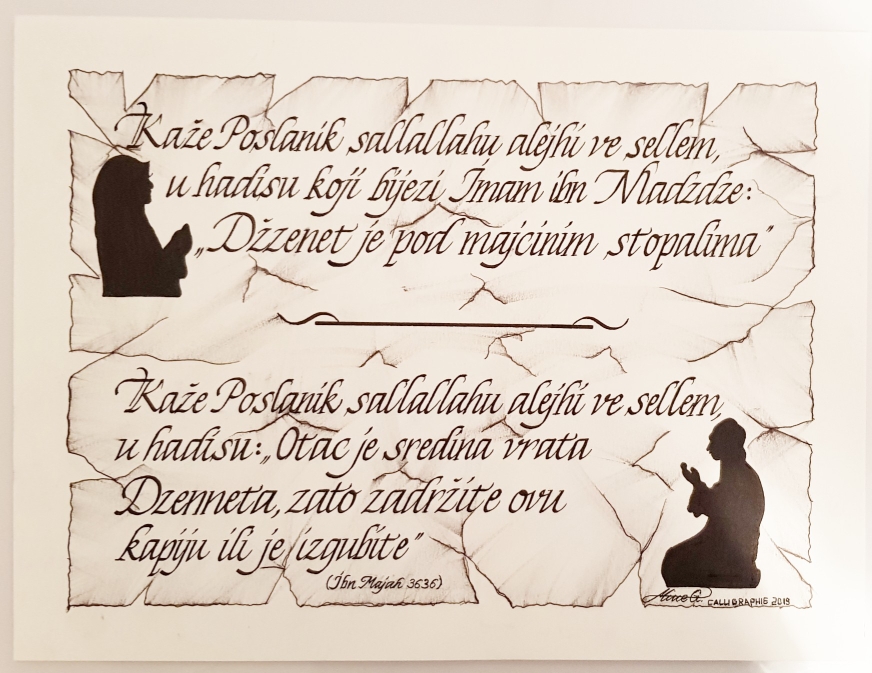 Kaže Poslanik sallallahu alejhi ve sellem,
u hadisu koji bijezi Imam ibn Madždže:
„Džzenet je pod majcinim stopalima”
Kaže Poslanik sallallahu alejhi ve sellem,
u hadisu: „Otac je sredina vrata
Dzenneta, zato zadržite ovu
kapiju ili je izgubite”
(Ibn Majah 3636)
CALLIGRAPHIE 2019